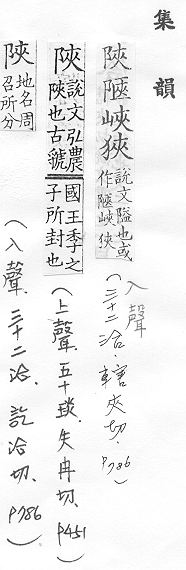 集韻
陜陿峽狹 說文隘也或作陿峽狹 (入聲.三十二洽.轄夾切.P786)
陝 說文弘農陝也古虢國王季之子所封也 (上聲.五十琰.失冉切.P451)
陜 地名周召所分 (入聲.三十二洽.訖洽切.P786)